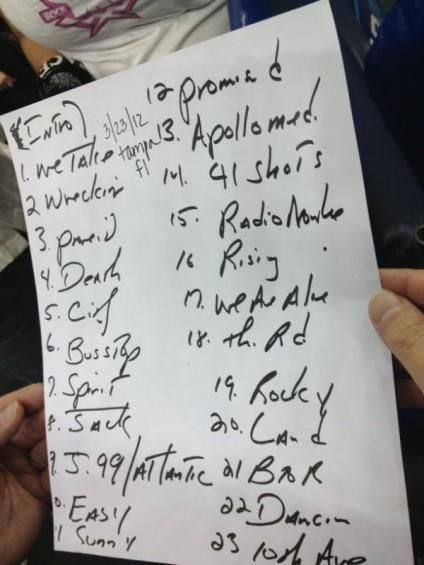 (Intro)
3/23/12
tampa
fl
1. we Take
2 Wreckin
3.
4. Death
5.
6. BusStop
7. Spirit
8. Jack
9. J. 99/Atlantic
0. Easy
11 Sunny
12 Promised
13. Apollo med.
14. 41 Shots
15. Radio Nowhe
16 Rising
17. we Are Alve
18. th. Rd
19. Rocky
20. Land
21 BTR
22 Dancin
23 10th Ave